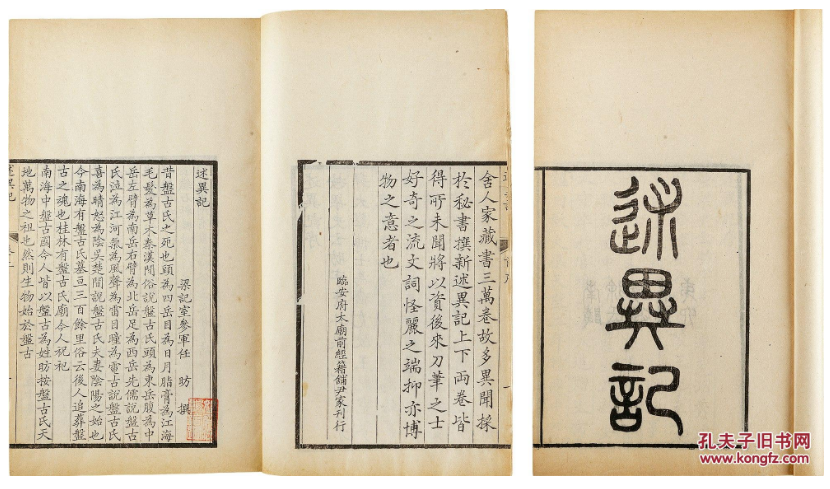 述異記
舍人家藏書三萬卷故多異聞採
於秘書撰新述異記上下兩卷皆
得所未聞將以資後來刀筆之士
好奇之流文詞怪麗之端抑亦博
物之意者也
臨安府太廟前經籍鋪尹家刊行
述異記
梁記室參軍任 昉 撰
昔盤古氏之死也頭為四岳目為日月脂膏為江海
毛髮為草木秦漢間俗說盤古氏頭為東岳腹為中
岳左臂為南岳右臂為北岳足為西岳先儒說盤古
氏泣為江河氣為風聲為雷目瞳為電古說盤古氏
喜為晴怒為陰吳楚間說盤古氏夫妻陰陽之始也
今南海有盤古氏墓亘三百餘里俗云後人追葬盤
古之魂也桂林有盤古氏廟今人祝祀
南海中盤古國今人皆以盤古為姓昉按盤古氏天
地萬物之祖也然則生物始於盤古
述異記
孔夫子旧书网
www.kongfz.com